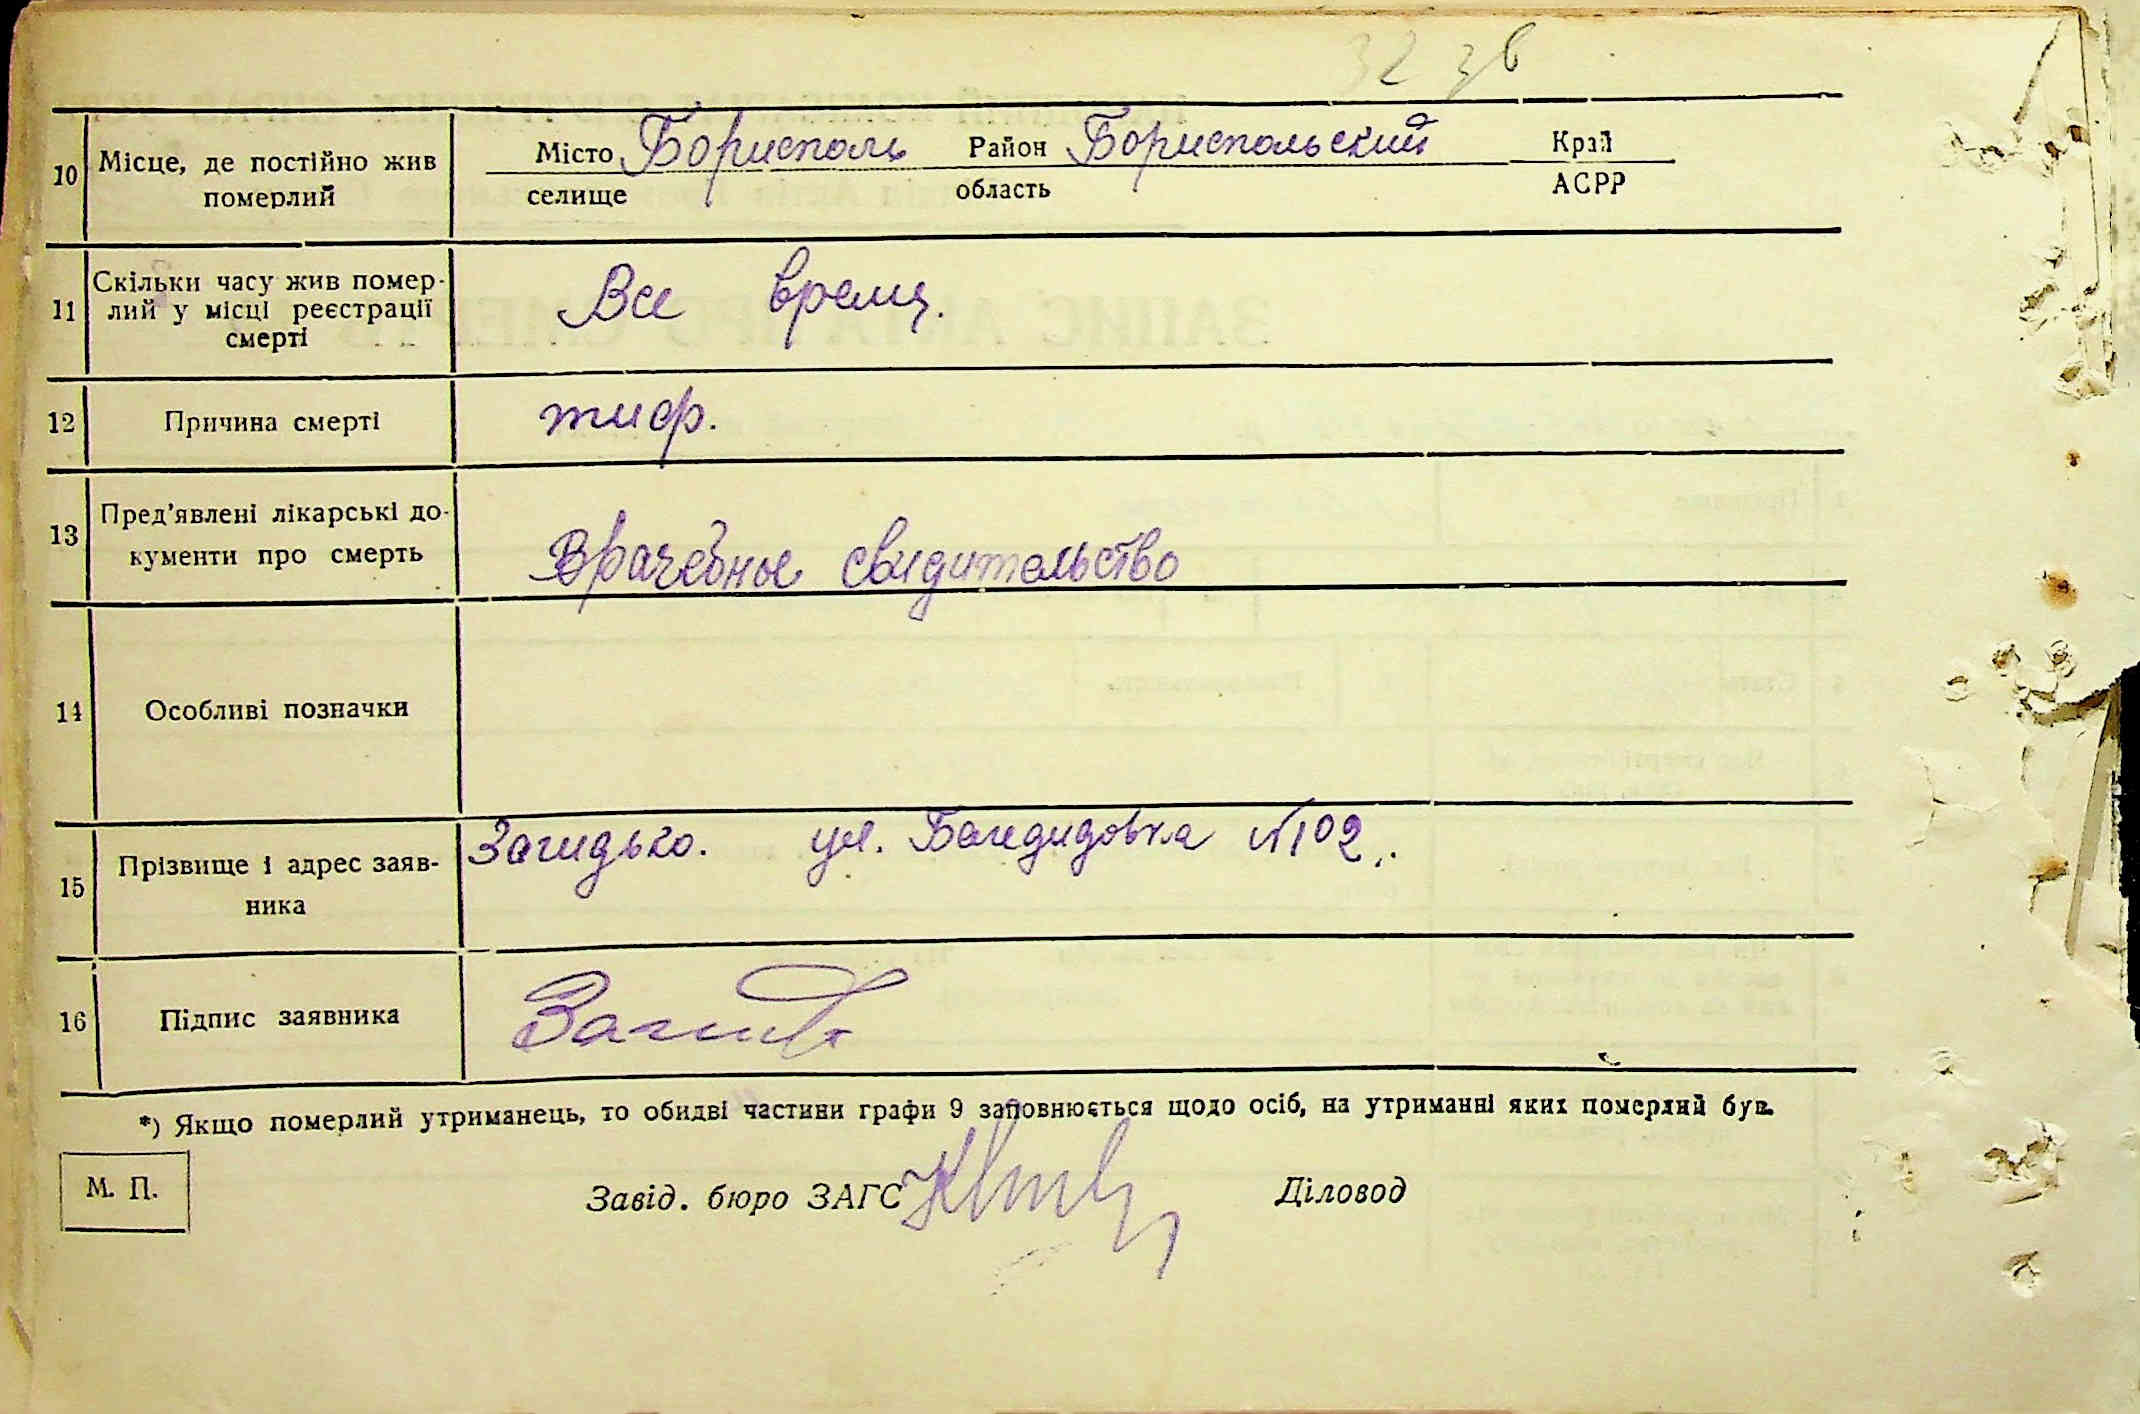 32 зв
10 Місце, де постійно жив померлий
Місто Борисполь Район Бориспольский Край
селище область АСРР
11 Скільки часу жив помер-
лий у місці реєстрації
смерті
Все время.
12 Причина смерті тиф.
13 Пред'явлені лікарські до-
кументи про смерть
Врачебное свидительство
14 Особливі позначки
15 Прізвище і адрес заяв-
ника
Загидько. ул. №102
16 Підпис заявника
*) Якщо померлий утриманець, то обидві частини графи 9 заповнюється щодо осіб, на утриманні яких померлий був.
М. П.
Завід. бюро ЗАГС Діловод